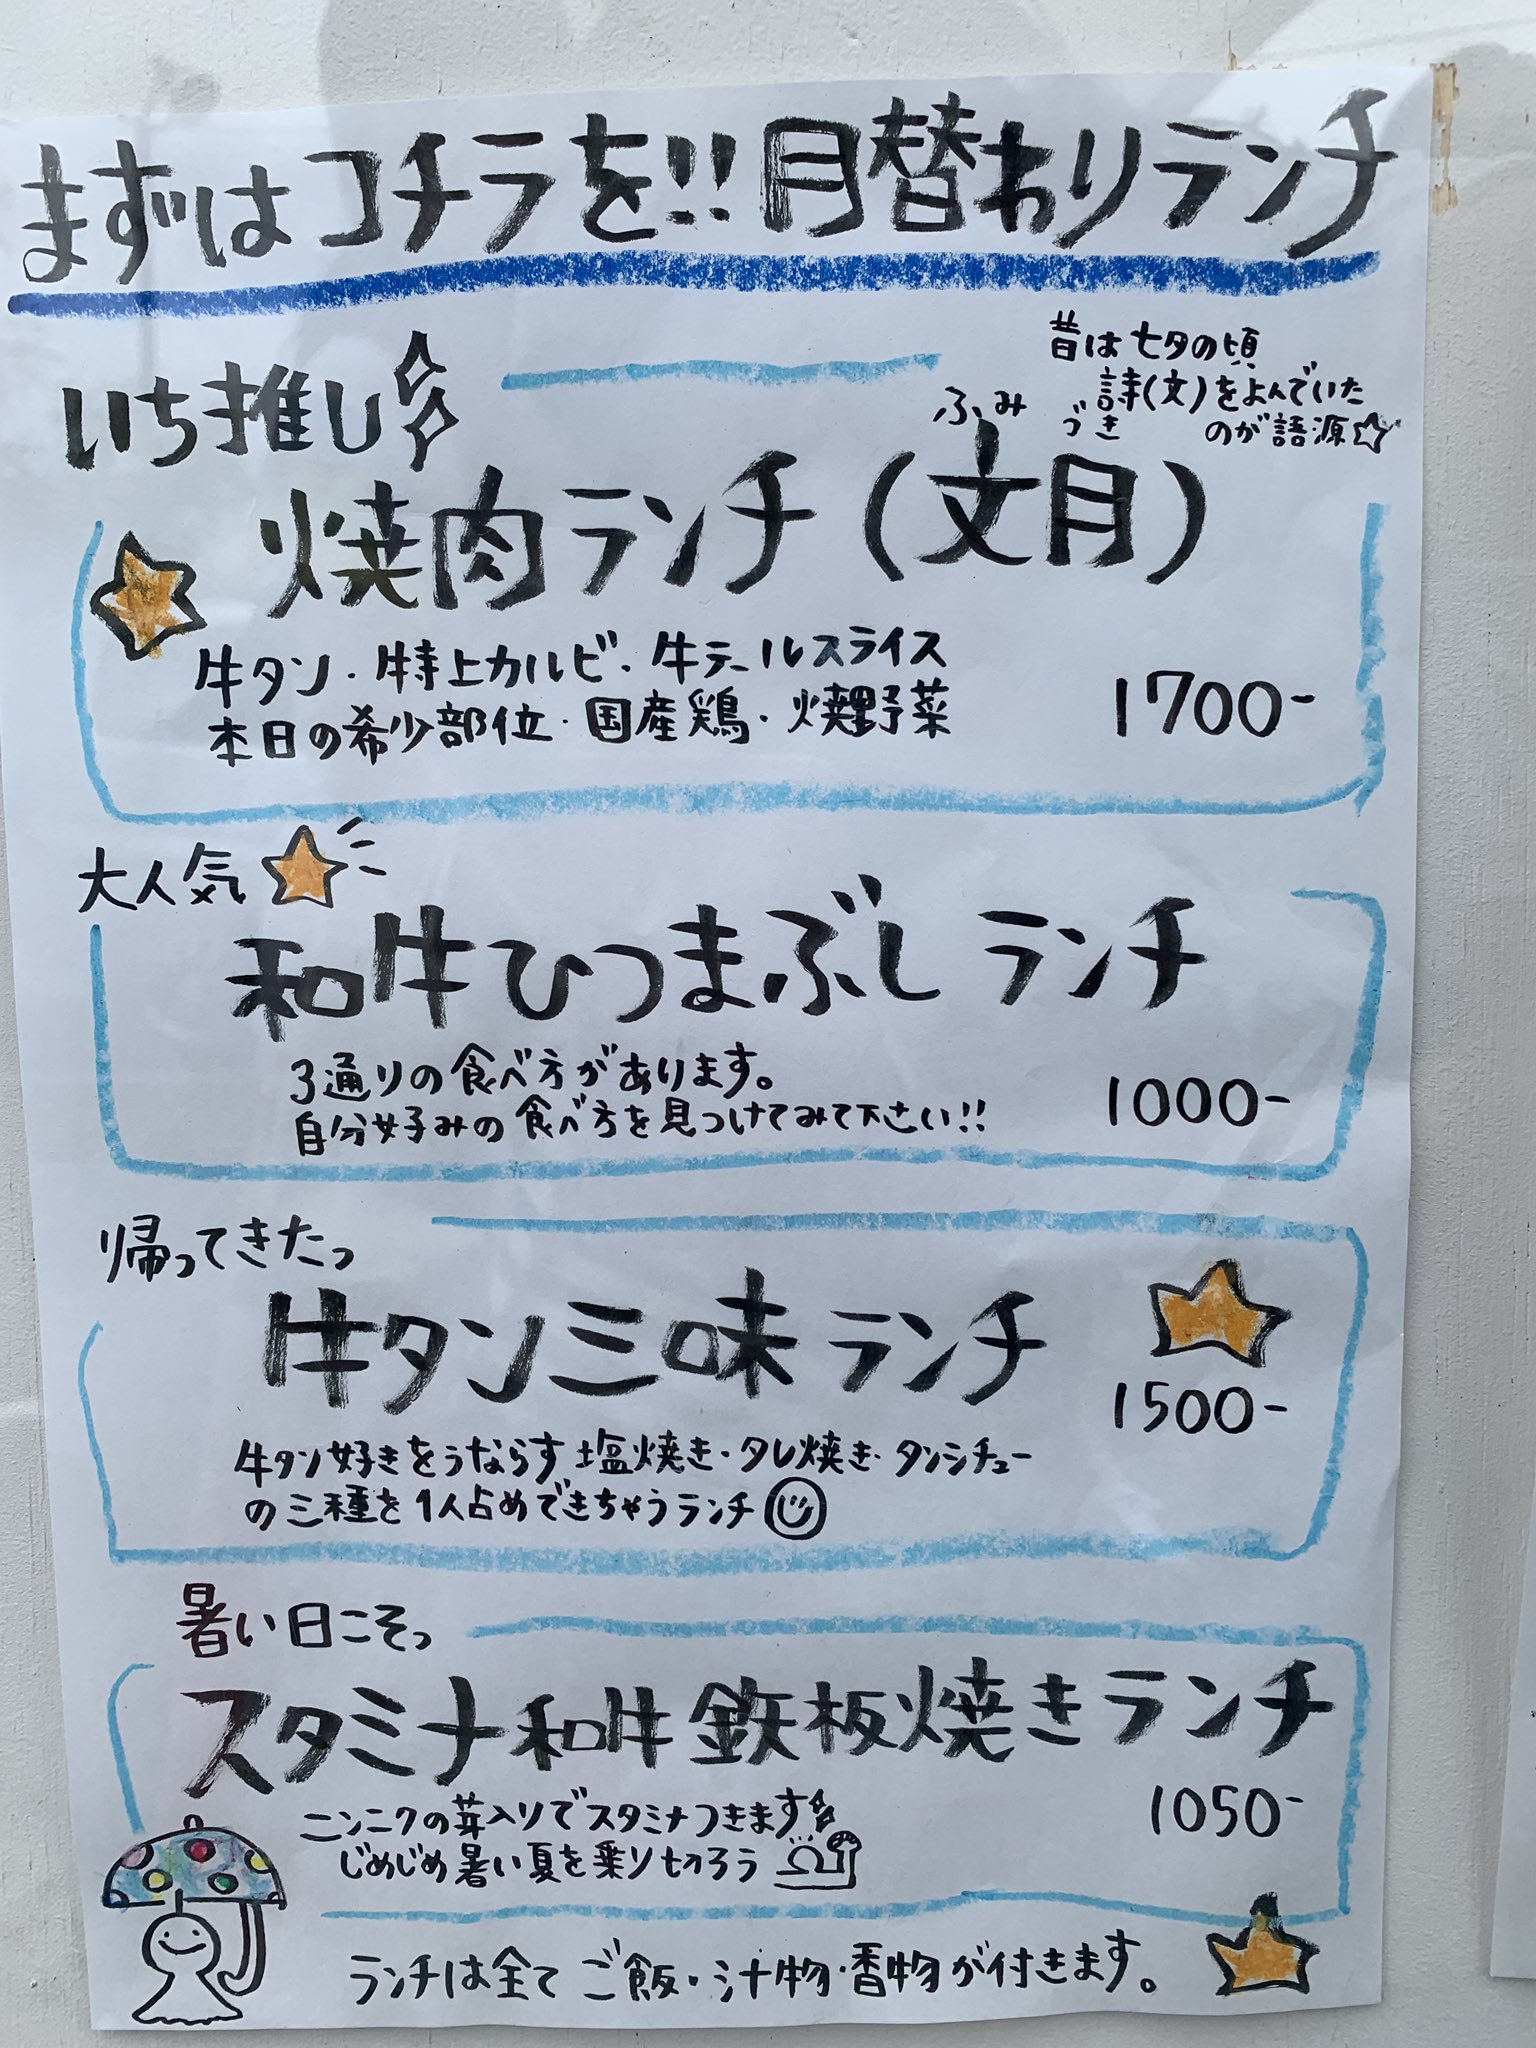 まずはコチラを!!月替わりランチ
いち推し
昔は七夕の頃
詩(文)をよんでいた
のが語源☆
ふみ づき
焼肉ランチ(文月)
牛タン・特上カルビ・牛テールスライス
本日の希少部位・国産鶏・焼野菜
1700-
大人気
和牛ひつまぶしランチ
3通りの食べ方があります。
自分好みの食べ方を見つけてみて下さい!!
1000-
帰ってきたっ
牛タン三味ランチ
1500-
牛タン好きをうならす塩焼き・タレ焼き・タンシチュー
の三種を1人占めできちゃうランチ
暑い日こそっ
スタミナ和牛鉄板焼きランチ
1050-
ニンニクの芽入りでスタミナつきます
じめじめ暑い夏を乗り切ろう
ランチは全てご飯・汁物・香物が付きます。